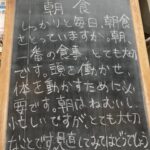 朝食
しっかりと毎日、朝食
をとっていますか。朝、一
番の食事とても大切
です。頭を働かせ、
体を動かすために必
要です。朝はねむいし、
忙しいですがとても大切
なことです。見直してみてはどうでしょう